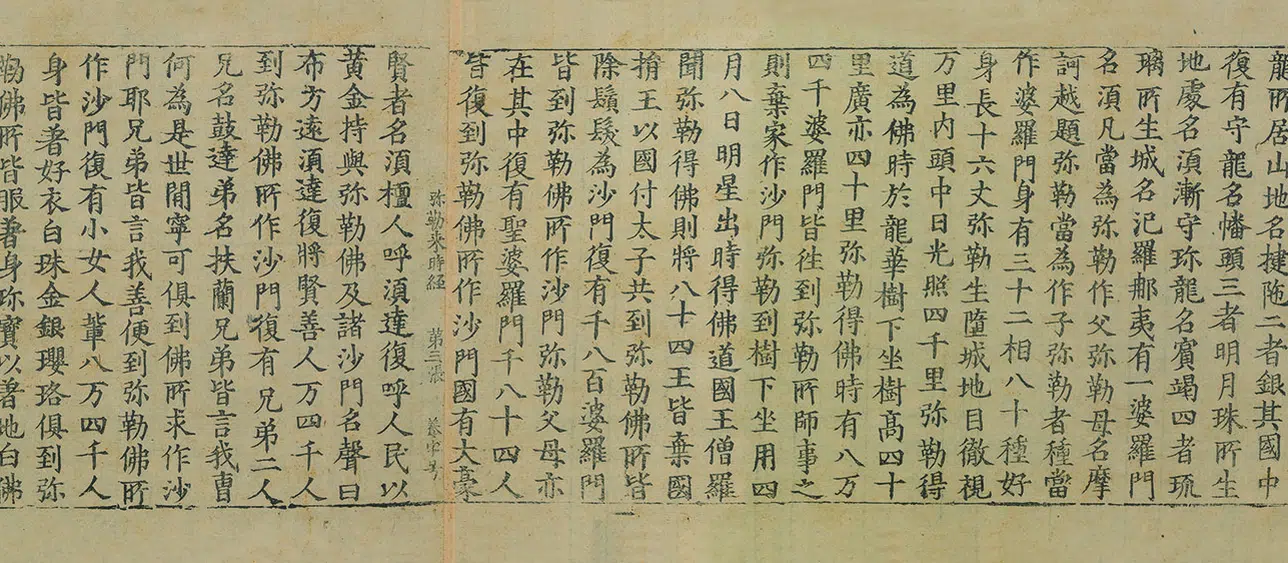 龍所居山地名揵陁二者銀其國中
復有守龍名幡頭三者明月珠所生
地處名湏漸守珎龍名賓竭四者琉
璃所生城名氾羅那夷有一婆羅門
名湏凡當為弥勒作父弥勒母名摩
訶越題弥勒當為作子弥勒者種當
作婆羅門身有三十二相八十種好
身長十六丈弥勒生墮城地目徹視
万里内頭中日光照四千里弥勒得
道為佛時於龍華樹下坐樹髙四十
里廣亦四十里弥勒得佛時有八万
四千婆羅門皆徃到弥勒所師事之
則棄家作沙門弥勒到樹下坐用四
月八日明星出時得佛道國王僧羅
聞弥勒得佛則將八十四王皆棄國
捐王以國付太子共到弥勒佛所皆
除鬚髮為沙門復有千八百婆羅門
皆到弥勒佛所作沙門弥勒父母亦
在其中復有聖婆羅門千八十四人
皆復到弥勒佛所作沙門國有大豪
弥勒来時経 第三張
賢者名湏檀人呼湏達復呼人民以
黄金持與弥勒佛及諸沙門名聲曰
布方遠湏達復將賢善人万四千人
到弥勒佛所作沙門復有兄弟二人
兄名鼓達弟名扶蘭兄弟皆言我曺
何為是世間寧可俱到佛所求作沙
門耶兄弟皆言我善便到弥勒佛所
作沙門復有小女人軰八万四千人
身皆著好衣白珠金銀瓔珞俱到弥
勒佛所皆服著身珎寳以著地白佛